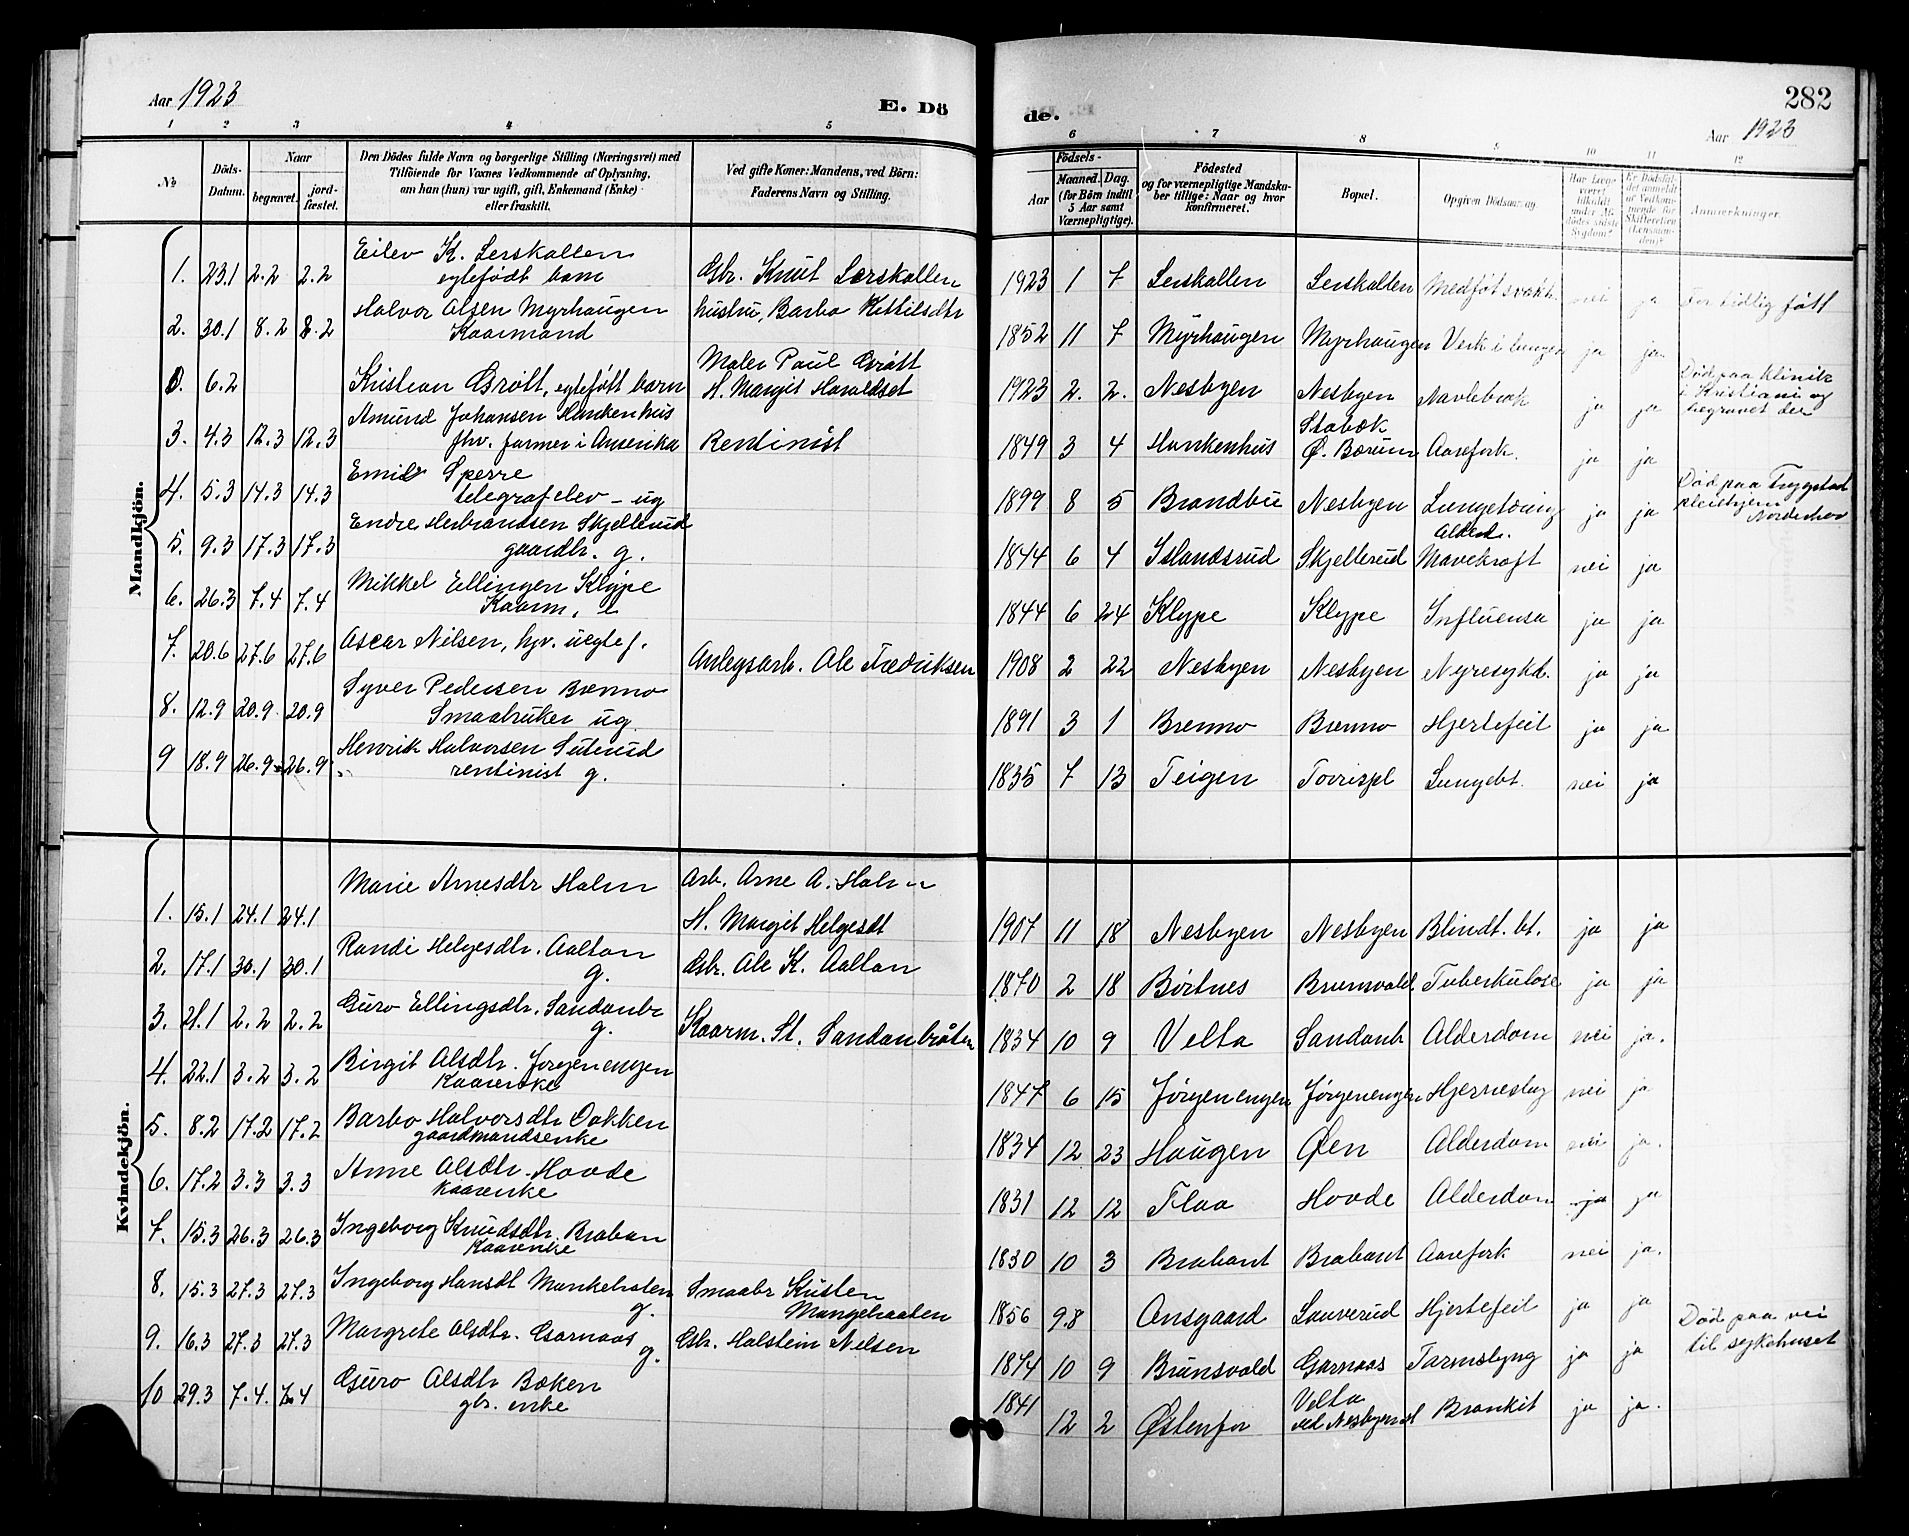 Aar 1923
E. Dö
de.
282
Aar 1923
1 2 3 4 5 6 7 8 9 10 11 12
No
Döds-Datum.
Naar
begravet.
jord-fæstet.
Den Dödes fulde Navn og borgerlige Stilling (Næringsvei) med
Tilföiende for Voxnes Vedkommende af Oplysning,
om han (hun) var ugift, gift, Enkemand (Enke)
eller fraskilt.
Ved gifte Koner: Mandens, ved Börn:
Faderens Navn og Stilling.
Födsels-
Aar
Maaned. Dag.
(for Börn indtil
5 Aar samt
Værnepligtige).
Födested
og for værnepligtige Mandska-
ber tillige: Naar og hvor
konfirmeret.
Bopæl.
Opgiven Dödsaarsag.
Anmærkninger.
Mandkjön.
1. 23.1 2.2 2.2 Eilev K. Lerskallen
egtefødt barn
Gbr. Knut Lerskallen
1923 1 7 Lerskallen Lerskallen nei ja For tidlig født
2. 30.1 8.2 8.2 Halvor Olsen Myrhaugen
Kaarmand
hustru, Barbo Kittilsdtr
1852 11 7 Myrhaugen Myrhaugen Verk i lungen ja ja
0. 6.2 Kristian Grøtt, egteføtt barn
Maler Paul Grøtt
H. Margit Haraldset
1923 2. 2. Nesbyen Nesbyen Navlebrok ja ja
Død paa klinik
i Kristiania og
begravet der
3. 4.3 12.3 12.3 Amund Johansen Hankenhus
fhv. farmer i Amerika
Rentinist
1849 3 4 Hankenhus Stabæk
Ø. Bærum Aarefork. ja ja
4. 5.3 14.3 14.3 Emil Sperre
telegrafelev - ug
1899 8 5 Brandbu Nesbyen Lungetæring ja ja
Død paa Tryggstad
pleiehjem
Norderhov
5. 9.3 17.3 17.3 Endre Herbrandsen Skjellerud
gaardbr. g.
1844 6 4 Islandsrud Skjellerud Alderd.
Mavekræft nei ja
6. 26.3 7.4 7.4 Mikkel Ellingen Klype
Kaarm.
1844 6 24 Klype Klype Influensa ja ja
7. 20.6 27.6 27.6 Oscar Nilsen, hjv. uegtef.
Anlegsarb. Ole Fredriksen
1908 2 22 Nesbyen Nesbyen Nyresykd. ja ja
8. 12.9 20.9 20.9 Syver Pedersen Brenno
Smaabruker ug.
1891 3 1 Brenno Brenno Hjertefeil ja ja
9 18.9 26.9 26.9 Henrik Halvorsen Luterud
rentinist g.
1835 7 13 Teigen Lungebt. nei ja
Kvindekjön.
1. 15.1 24.1 24.1 Marie Arnesdtr Halm
Arb. Arne A. Halm
H. Margit Helgesdt
1907 11 18 Nesbyen Nesbyen Blindt. bt. ja ja
2. 17.1 30.1 30.1 Randi Helgesdtr. Aalton
g.
Gbr. Ole K. Aalton
1870 2 18 Børtnes Brunsvold. Tuberkulose ja ja
3. 21.1 2.2 2.2 Guro Ellingsdtr. Sandanbr
g.
Kaarm. St. Sandanbråten
1834 10 9 Velta Sandanb Alderdom nei ja.
4. 22.1 3.2 3.2 Birgit Olsdtr. Jørgenengen
Kaarenke
1847 6 15 Jørgenengen Jørgenengen Hjerneslag nei ja
5. 8.2 17.2 17.2 Barbo Halvorsdtr Dokken
gaardmandsenke
1834 12 23 Haugen Øen Alderdom nei ja.
6. 17.2 3.3 3.3 Anne Olsdtr. Hovde
Kaarenke
1831 12 12 Flaa Hovde Alderdom ja ja
7. 15.3 26.3 26.3 Ingeborg Knudsdtr. Braban
Kaarenke
1830 10 3 Brabant Brabant Aarefork nei ja.
8. 15.3 27.3 27.3 Ingeborg Hansdt
g.
Smaabr Kristen
1856 9.8 Ansgaard Hjertefeil ja ja
Død paa vei
til sykehuset
9. 16.3 27.3 27.3 Margrete Olsdtr. Garnaas
g.
Gbr. Halstein Nelsen
1874 10 9 Brunsvold Garnaas Tarmslyng ja ja
10 29.3 7.4. 7.4 Guro Olsdtr Boken
gbr. enke
1841 12 2 Østenfor Velta
ved Nesbyen st Bronkit ja ja.